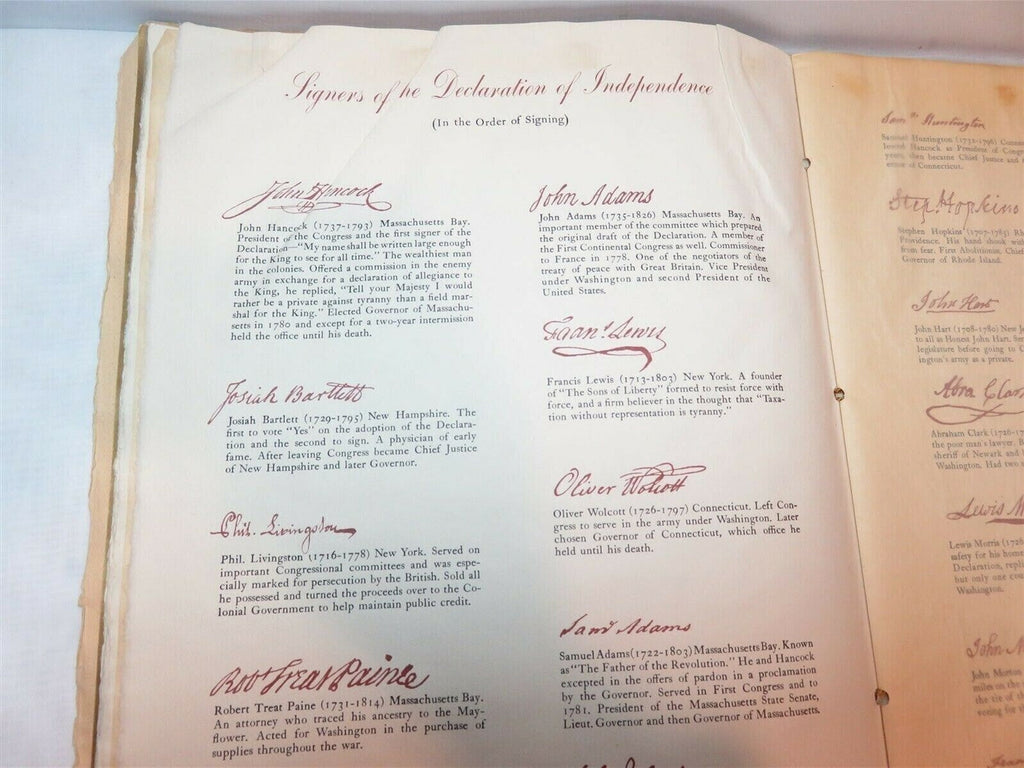 Signers of he Declaration of Independence
(In the Order of Signing)
John Hancock
John Hancock (1737-1793) Massachusetts Bay.
President of the Congress and the first signer of the
Declaration—"My name shall be written large enough
for the King to see for all time." The wealthiest man
in the colonies. Offered a commission in the enemy
army in exchange for a declaration of allegiance to
the King, he replied, "Tell your Majesty I would
rather be a private against tyranny than a field mar-
shal for the King." Elected Governor of Massachu-
setts in 1780 and except for a two-year intermission
held the office until his death.
Josiah Bartlett
Josiah Bartlett (1729-1795) New Hampshire. The
first to vote "Yes" on the adoption of the Declara-
tion and the second to sign. A physician of early
fame. After leaving Congress became Chief Justice
of New Hampshire and later Governor.
Phil. Livingston
Phil. Livingston (1716-1778) New York. Served on
important Congressional committees and was espe-
cially marked for persecution by the British. Sold all
he possessed and turned the proceeds over to the Co-
lonial Government to help maintain public credit.
Robt Treat Paine
Robert Treat Paine (1731-1814) Massachusetts Bay.
An attorney who traced his ancestry to the May-
flower. Acted for Washington in the purchase of
supplies throughout the war.
John Adams
John Adams (1735-1826) Massachusetts Bay. An
important member of the committee which prepared
the original draft of the Declaration. A member of
the First Continental Congress as well. Commissioner
to France in 1778. One of the negotiators of the
treaty of peace with Great Britain. Vice President
under Washington and second President of the
United States.
Frans. Lewis
Francis Lewis (1713-1803) New York. A founder
of "The Sons of Liberty" formed to resist force with
force, and a firm believer in the thought that "Taxa-
tion without representation is tyranny."
Oliver Wolcott
Oliver Wolcott (1726-1797) Connecticut. Left Con-
gress to serve in the army under Washington. Later
chosen Governor of Connecticut, which office he
held until his death.
Saml Adams
Samuel Adams (1722-1803) Massachusetts Bay. Known
as "The Father of the Revolution." He and Hancock
excepted in the offers of pardon in a proclamation
by the Governor. Served in First Congress and to
1781. President of the Massachusetts State Senate,
Lieut. Governor and then Governor of Massachusetts.
Saml Huntington
Samuel Huntington (1732-1796)
lowed Hancock as President of
years, then became Chief Justice and
ernor of Connecticut.
Step. Hopkins
Stephen Hopkins (1707-1785)
Providence. His hand shook
from fear. First Abolitionist, Chief
Governor of Rhode Island.
John Hart
John Hart (1708-1780) New
to all as Honest John Hart.
legislature before going to
ington's army as a private.
Abra Clar
Abraham Clark
the poor man's lawyer.
sheriff of Newark and
Washington. Had two
Lewis M
Lewis Morris
safety for his home
Declaration,
but only one
Washington.
John M
John Morton
miles on the
the tie of
voting for